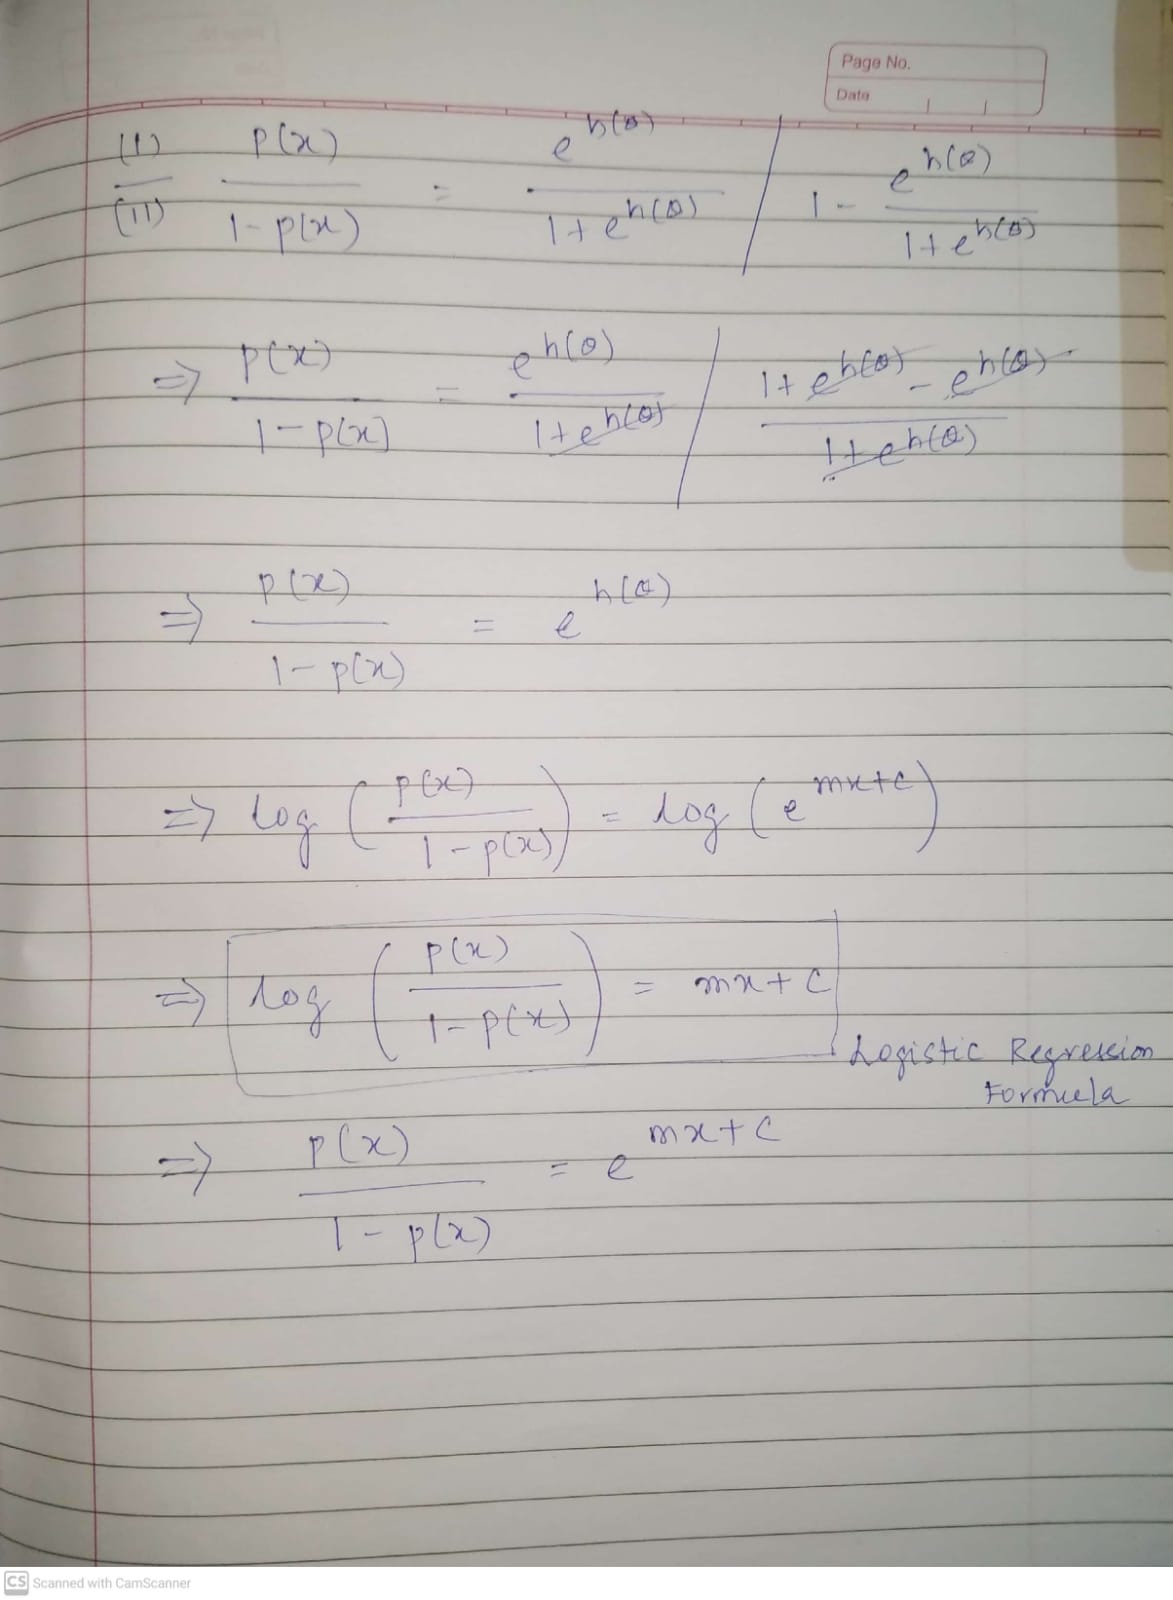 Page No.
Date
(I)/(II) p(x)/(1-p(x)) = e^h(θ)/(1+e^h(θ)) / 1 - e^h(θ)/(1+e^h(θ))
⇒ p(x)/(1-p(x)) = e^h(θ)/(1+e^h(θ)) / (1+e^h(θ) - e^h(θ))/(1+e^h(θ))
⇒ p(x)/(1-p(x)) = e^h(θ)
⇒ log (p(x)/(1-p(x))) = log (e^mx+c)
⇒ log (p(x)/(1-p(x))) = mx+c
Logistic Regression
Formula
⇒ p(x)/(1-p(x)) = e^mx+c
CS Scanned with CamScanner